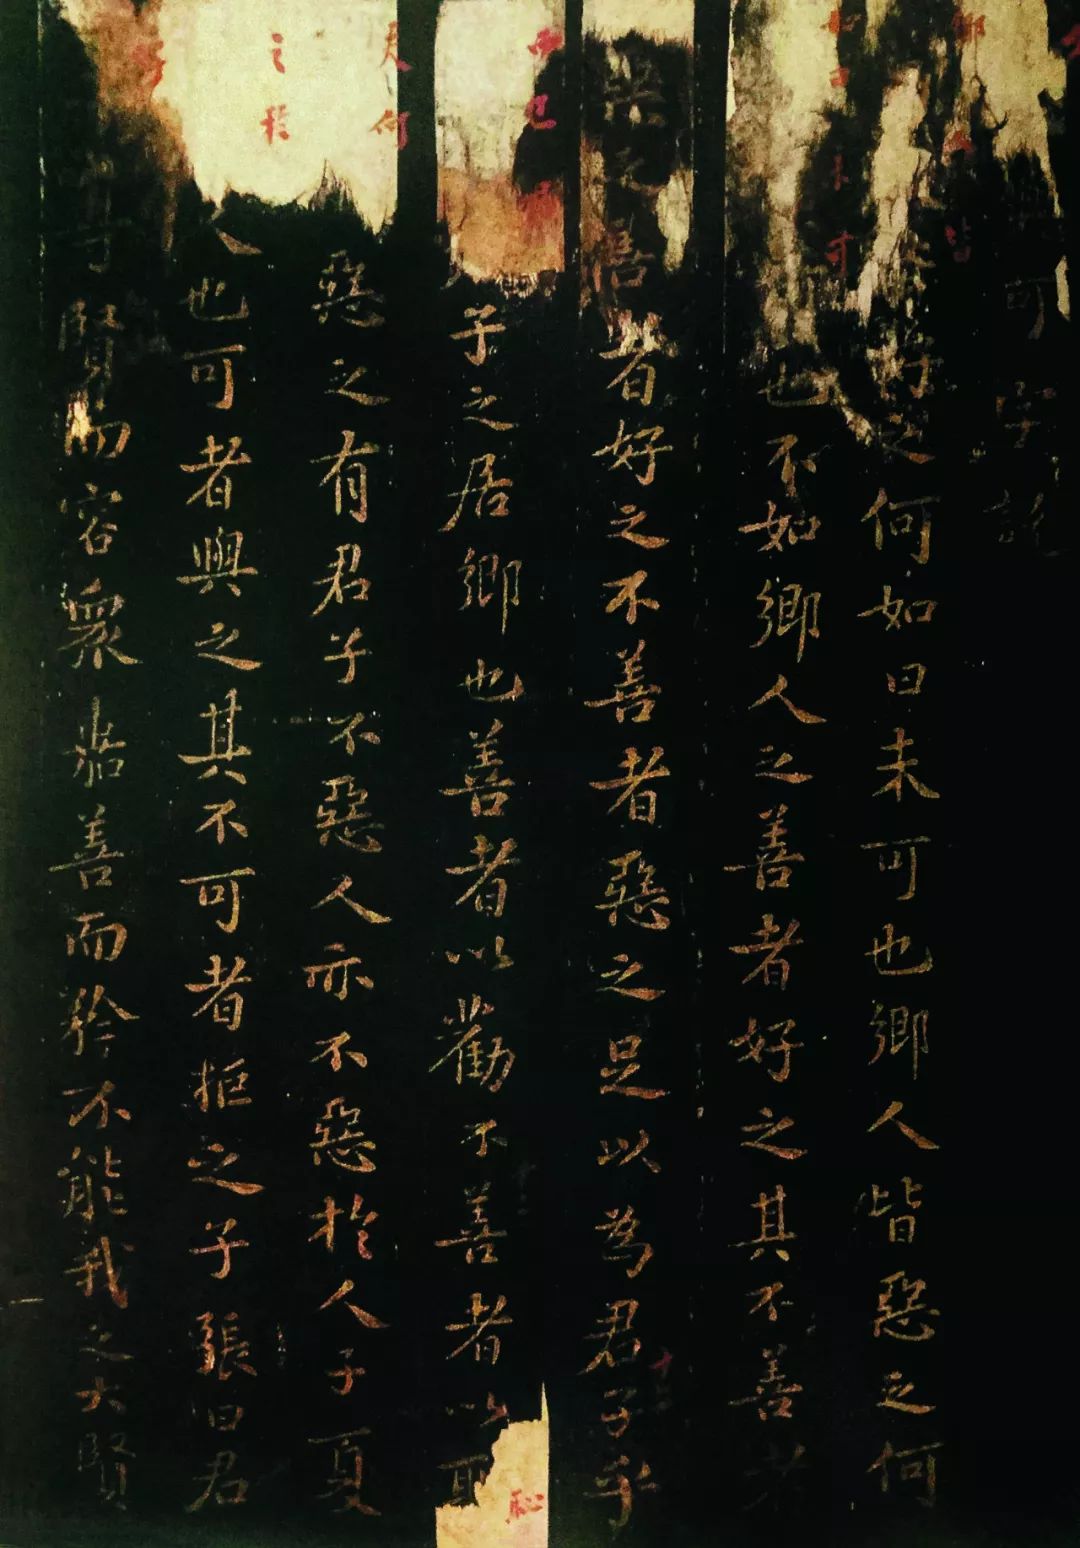 與可字說
鄉人皆好之何如曰未可也鄉人皆惡之何
如曰未可也不如鄉人之善者好之其不善者
惡之善者好之不善者惡之足以為君子乎
子之居鄉也善者以勸不善者以恥
夫何惡之有君子不惡人亦不惡於人子夏
之於人也可者與之其不可者拒之子張曰君
子尊賢而容眾嘉善而矜不能我之大賢